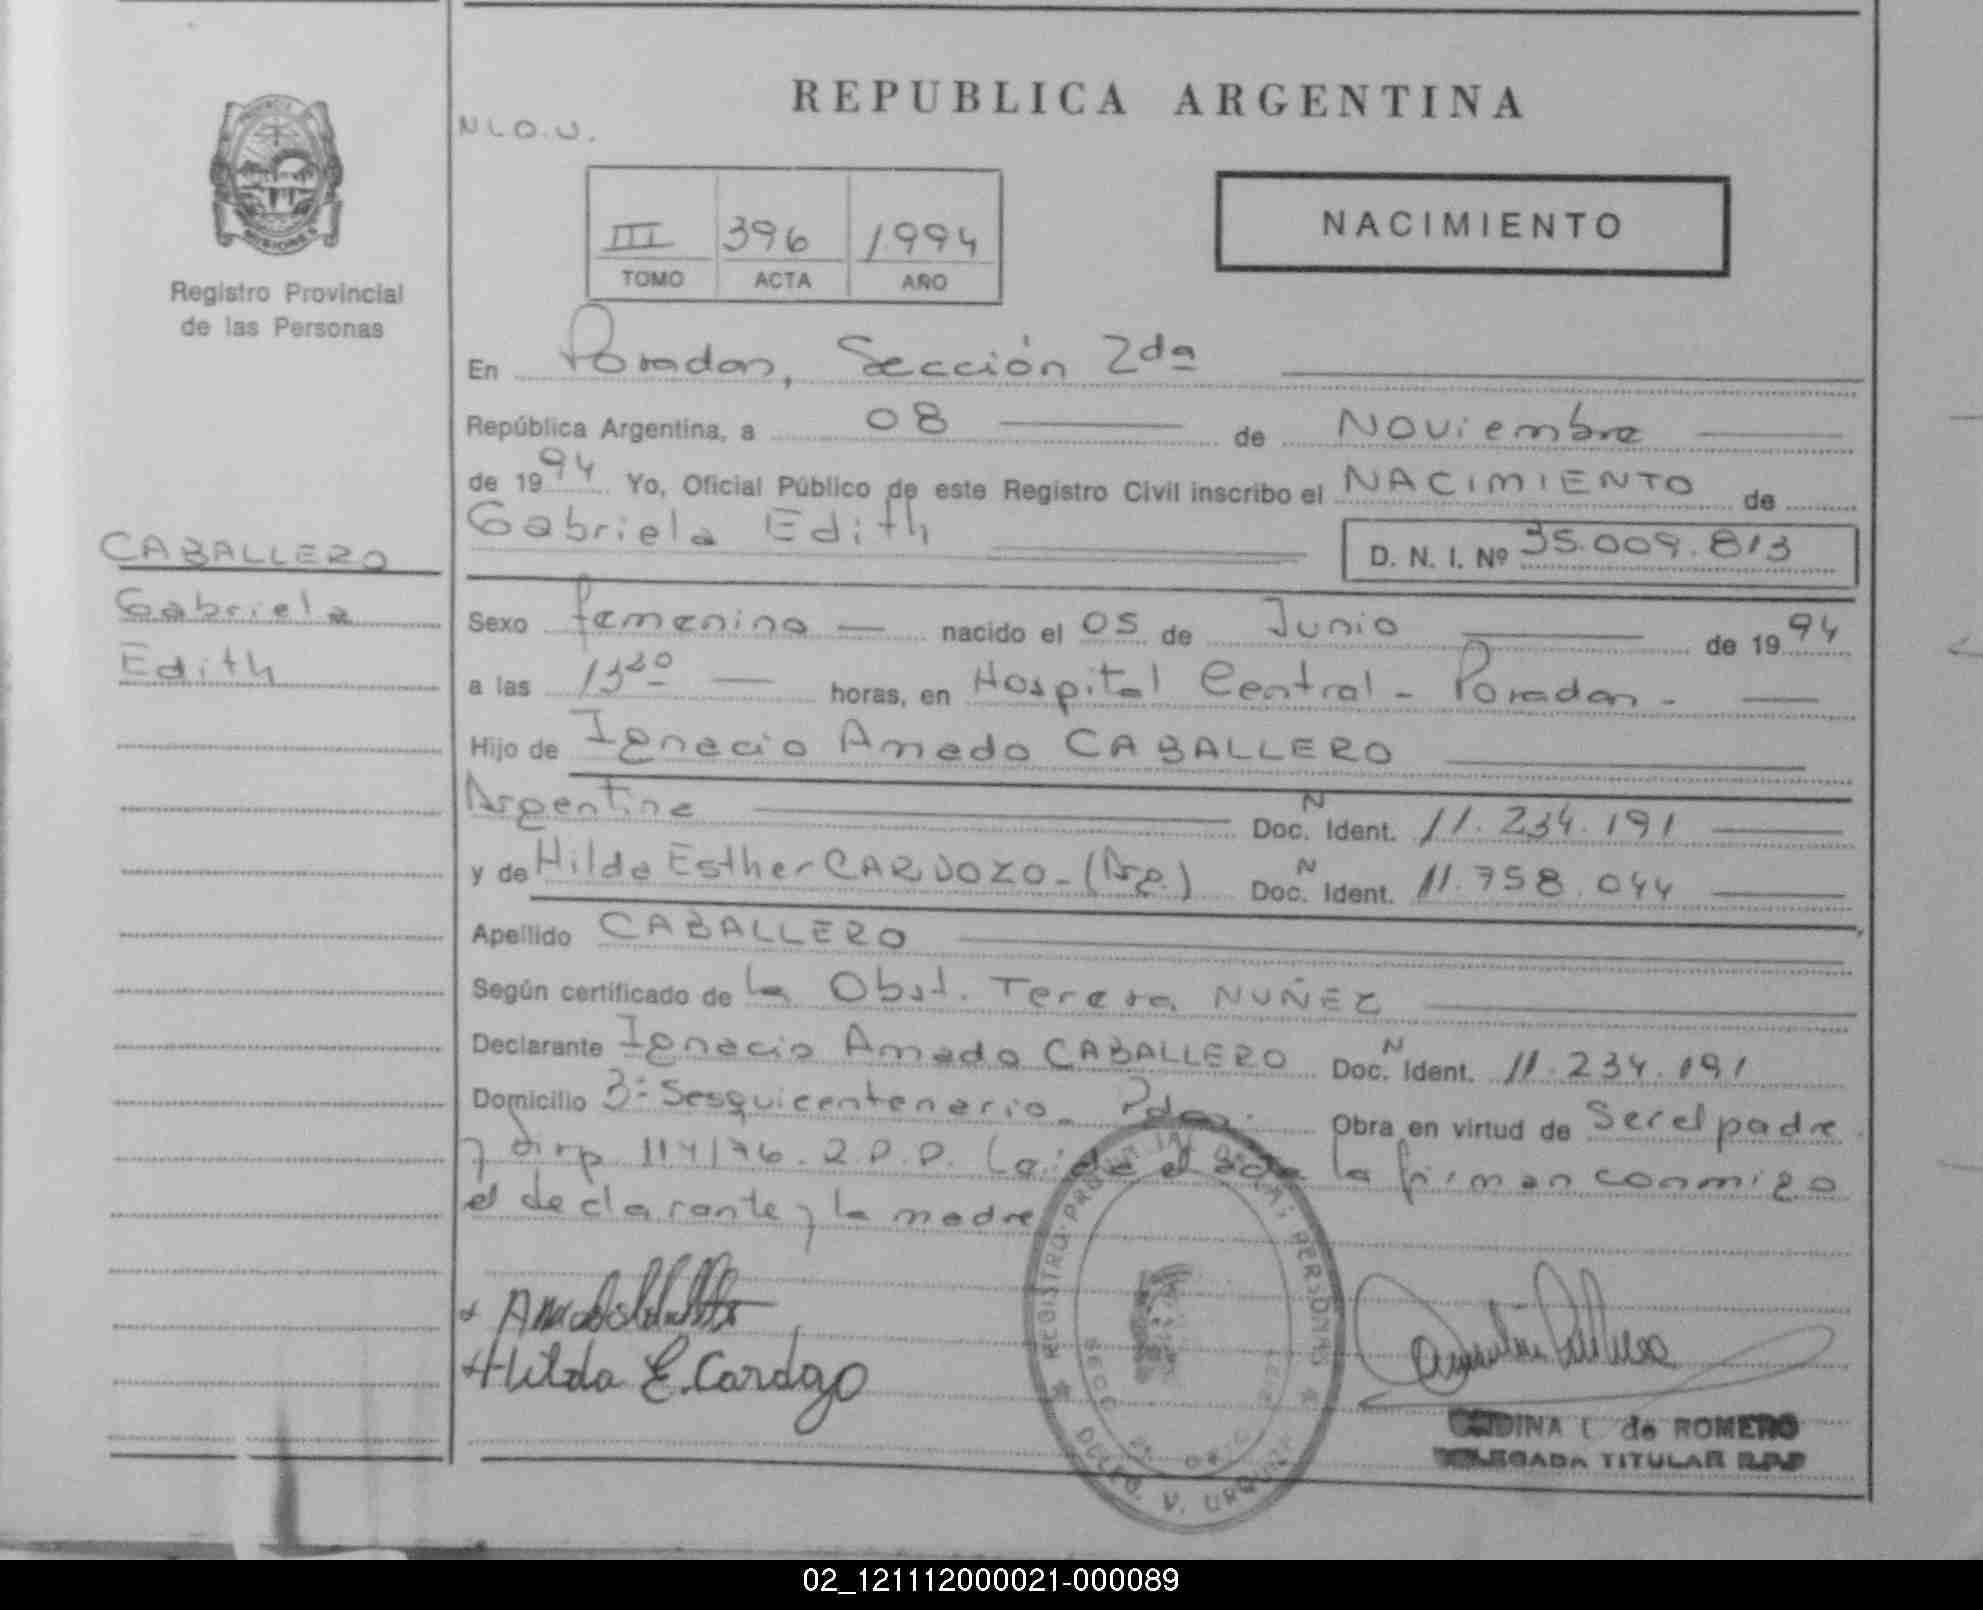 REPUBLICA ARGENTINA
N L O. U.
MISIONES
Registro Provincial
de las Personas
III 396 1994
TOMO ACTA AÑO
NACIMIENTO
En Posadas, Sección 2da
República Argentina, a 08 de Noviembre
de 1994 Yo, Oficial Público de este Registro Civil inscribo el NACIMIENTO de
Gabriela Edith
D. N. I. Nº 35.009.813
CABALLERO
Gabriela
Edith
Sexo femenino nacido el 05 de Junio de 1994
a las horas, en Hospital Central - Posadas -
Hijo de Ignacio Amado CABALLERO
Argentina Doc. N Ident. 11.234.191
y de Hilda Esther CARDOZO - (Arg.) Doc. N Ident. 11.758.044
Apellido CABALLERO
Según certificado de la Obst. Teresa NUÑEZ
Declarante Ignacio Amado CABALLERO Doc. N Ident. 11.234.191
Domicilio Bº Sesquicentenario - Pdas. Obra en virtud de Ser el padre
y Disp 114/76. R.P.P. Leída el acta la firman conmigo
el declarante y la madre
Hilda E. Cardozo
REGISTRO PROVINCIAL DE LAS PERSONAS
DELEG. V. URQUIZA
DINA L. de ROMERO
DELEGADA TITULAR R.P.P
02_121112000021-000089